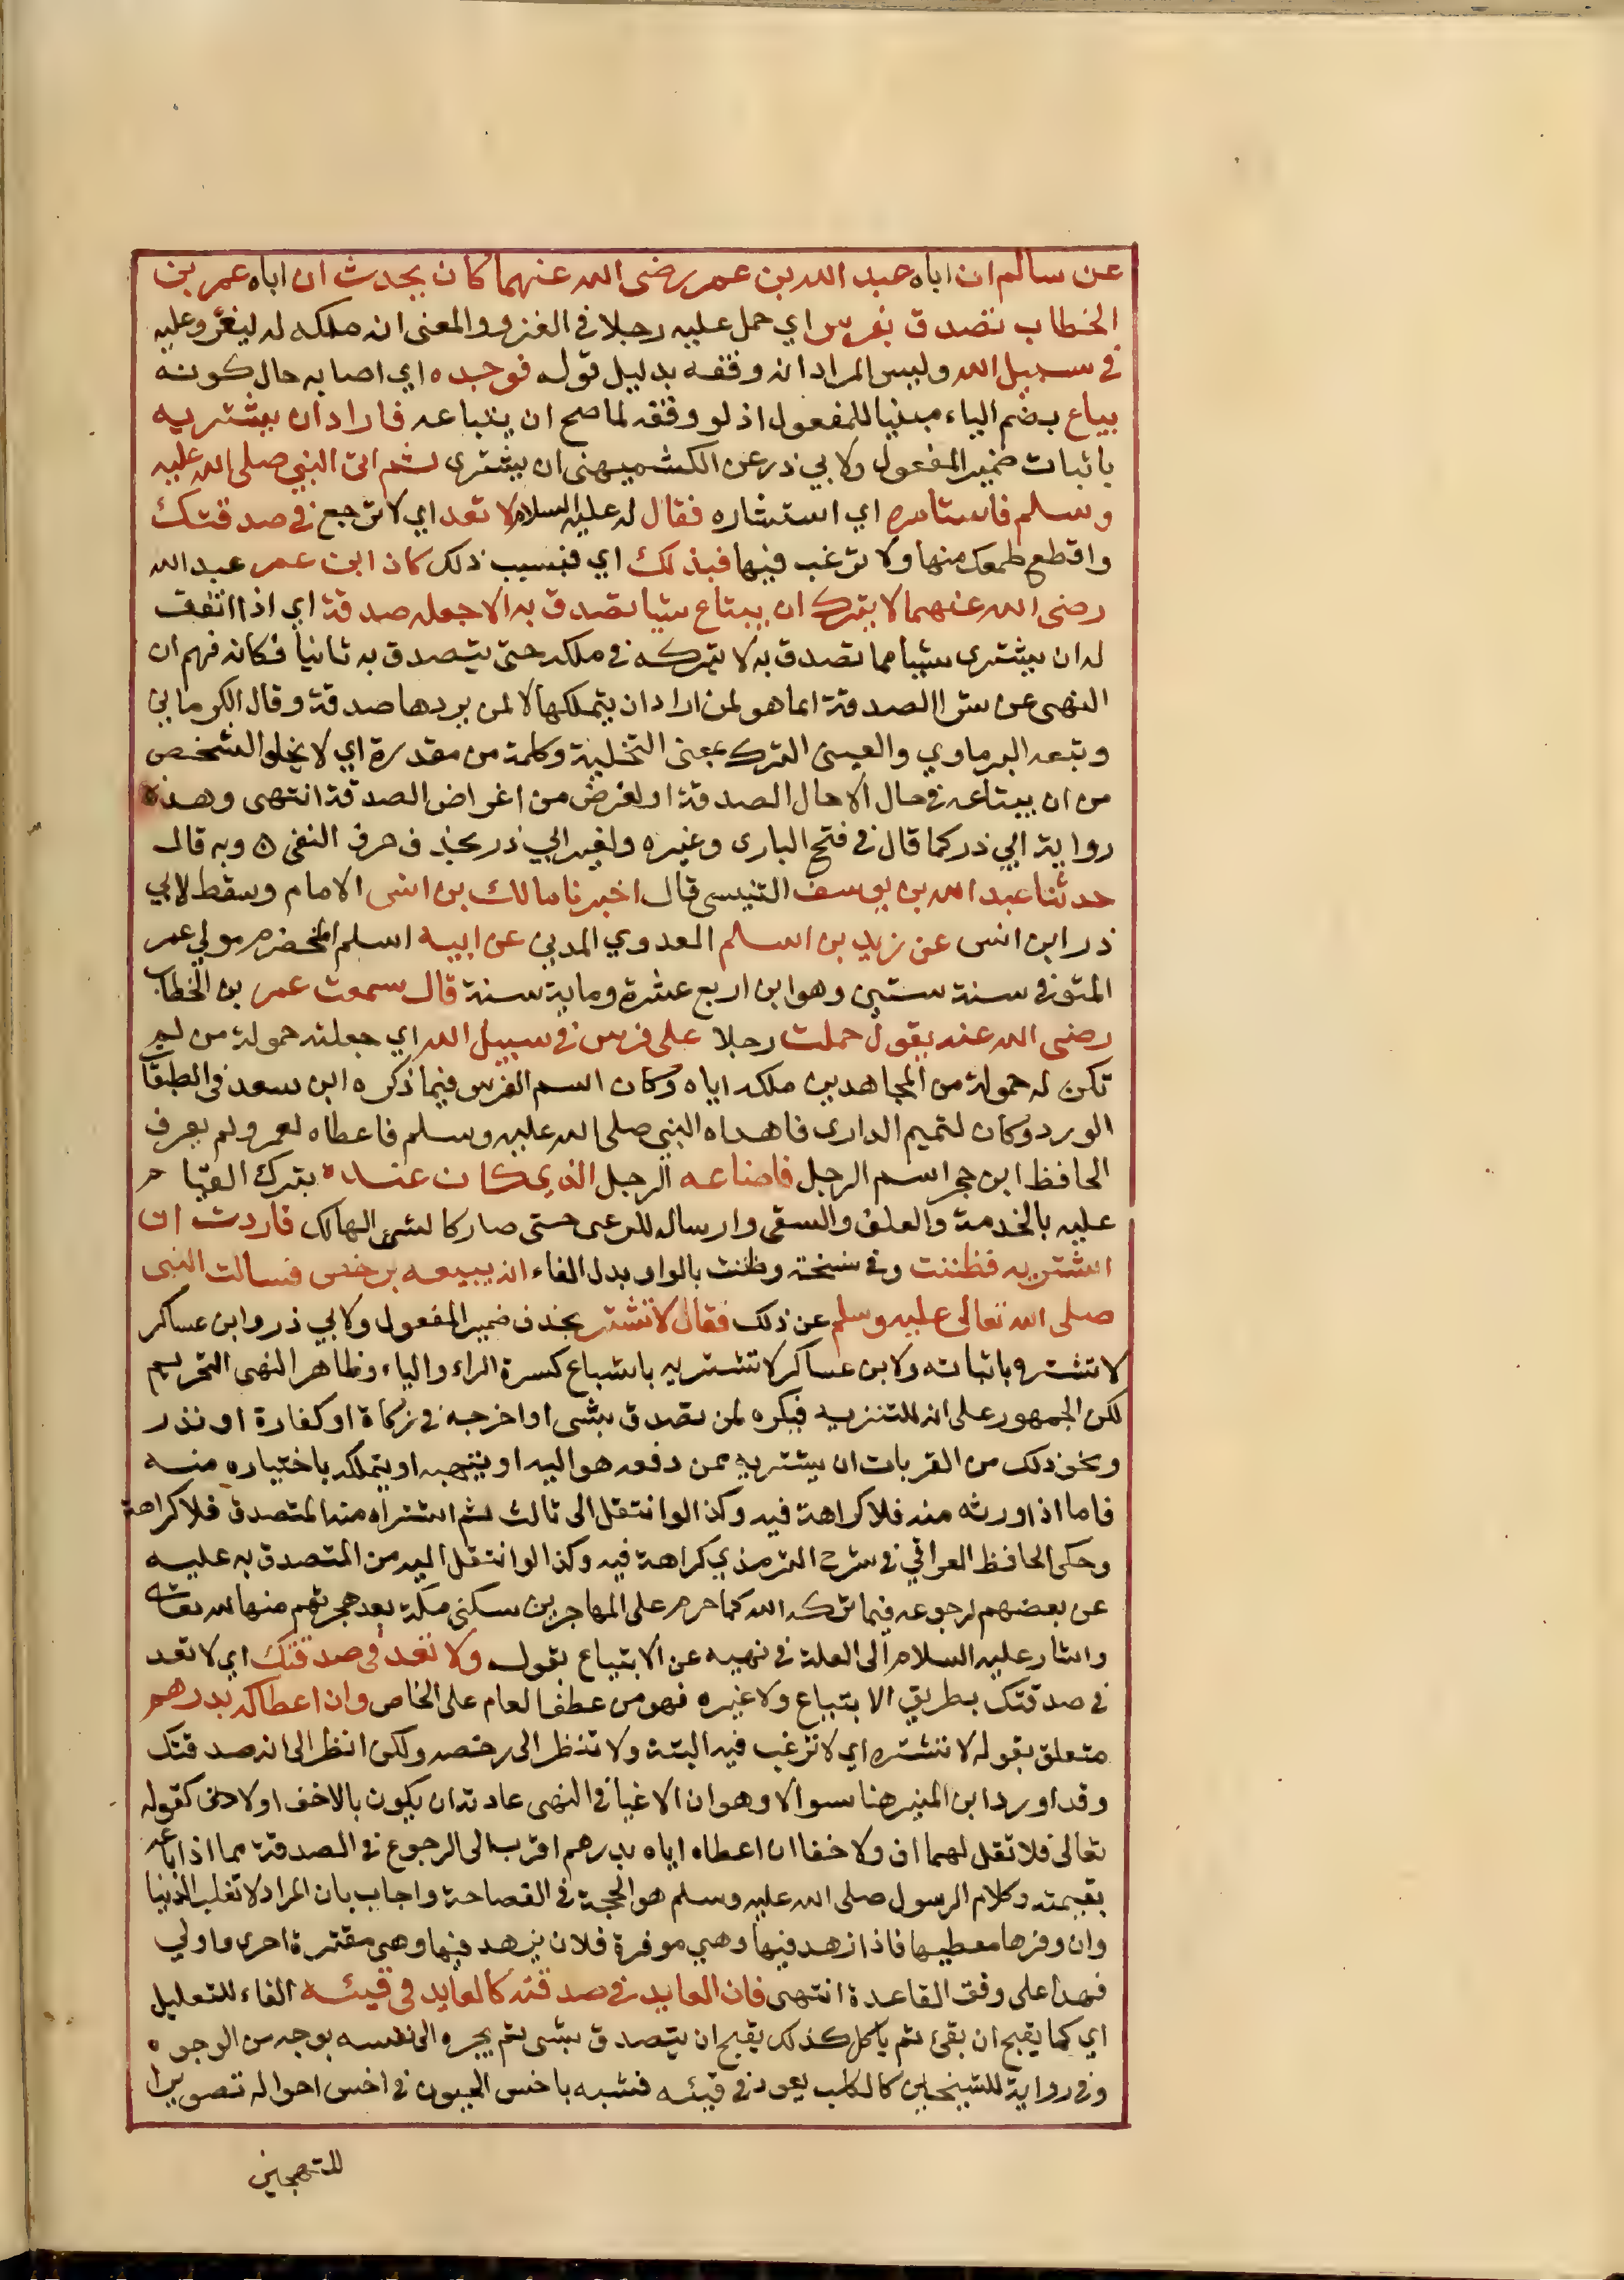 عن سالم ان اباه عبد الله بن عمر رضى الله عنهما كان يحدث ان اباه عمر بن
الخطاب تصدق بفرس اي حمل عليه رجلا في الغزو والمعنى انه ملكه له ليغزو عليه
في سبيل الله وليس المراد انه وقفه بدليل قوله فوجده اي اصابه حال كونه
يباع بضم الياء مبنيا للمفعول اذ لو وقفه لما صح ان يبتاعه فاراد ان يشتريه
باثبات ضمير المفعول ولابي ذر عن الكشميهنى ان يشترى ثم اتى النبي صلى الله عليه
وسلم فاستامره اي استشاره فقال له عليه السلام لا تعد اي لا ترجع في صدقتك
واقطع طمعك منها ولا ترغب فيها فبذلك اي فبسبب ذلك كان ابن عمر عبد الله
رضى الله عنهما لا يترك ان يبتاع شيا تصدق به الا جعله صدقة اي اذا اتفق
له ان يشترى شيا مما تصدق به لا يتركه في ملكه حتى يتصدق به ثانيا فكانه فهم ان
النهى عن شرا الصدقة انما هو لمن اراد ان يتملكها لا لمن يردها صدقة وقال الكرماني
وتبعه البرماوي والعينى الترك بمعنى التخلية وكلمة من مقدرة اي لا يخلو الشخص
من ان يبتاعه في حال الا حال الصدقة او لغرض من اغراض الصدقة انتهى وهذه
رواية ابي ذر كما قال في فتح البارى وغيره ولغير ابي ذر بحذف حرف النفى ٥ وبه قال
حدثنا عبد الله بن يوسف التنيسى قال اخبرنا مالك بن انس الامام وسقط لابي
ذر ابن انس عن زيد بن اسلم العدوي المدني عن ابيه اسلم المخضرم مولي عمر
المتوفى سنة ستين وهو ابن اربع عشرة وماية سنة قال سمعت عمر بن الخطاب
رضى الله عنه يقول حملت رجلا على فرس في سبيل الله اي جعلته حمولة من لم
تكن له حمولة من المجاهدين ملكه اياه وكان اسم الفرس فيما ذكره ابن سعد في الطبقات
الورد وكان لتميم الدارى فاهداه النبي صلى الله عليه وسلم فاعطاه لعمر ولم يعرف
الحافظ ابن حجر اسم الرجل فاضاعه الرجل الذي كان عنده بترك القيام
عليه بالخدمة والعلف والسقى وارساله للرعى حتى صار كالشئ الهالك فاردت ان
اشتريه فظننت وفي نسخة وظننت بالواو بدل الفاء انه يبيعه برخص فسالت النبى
صلى الله تعالى عليه وسلم عن ذلك فقال لا تشتر بحذف ضمير المفعول ولابي ذر وابن عساكر
لا تشتره باثباته ولابن عساكر لا تشتريه باشباع كسرة الراء والياء وظاهر النهى التحريم
لكن الجمهور على انه للتنزيه فيكره لمن تصدق بشى او اخرجه في زكاة او كفارة او نذر
ونحو ذلك من القربات ان يشتريه ممن دفعه هو اليه او يتهبه او يتملكه باختياره منه
فاما اذا ورثه منه فلا كراهة فيه وكذا لو انتقل الى ثالث ثم اشتراه منه المتصدق فلا كراهة
وحكى الحافظ العراقي في شرح الترمذي كراهة فيه وكذا لو انتقل اليه من المتصدق به عليه
عن بعضهم لرجوعه فيما تركه الله كما حرم على المهاجرين سكنى مكة بعد هجرتهم منها لله تعالى
واشار عليه السلام الى العلة في نهيه عن الابتياع بقوله ولا تعد في صدقتك اي لا تعد
في صدقتك بطريق الابتياع ولا غيره فهو من عطف العام على الخاص وان اعطاكه بدرهم
متعلق بقوله لا تشتره اي لا ترغب فيه البتة ولا تنظر الى رخصه ولكن انظر الى انه صدقتك
وقد اورد ابن المنير هنا سوالا وهو ان الاغيا في النهى عادته ان يكون بالاخف او الادنى كقوله
تعالى فلا تقل لهما اف ولا خفا ان اعطاه اياه بدرهم اقرب الى الرجوع في الصدقة مما اذا باعه
بقيمته وكلام الرسول صلى الله عليه وسلم هو الحجة في الفصاحة واجاب بان المراد لا تغلب الدنيا
وان وفرها معطيها فاذا زهد فيها وهي موفرة فلان يزهد فيها وهى مقترة احرى واولي
فهذا على وفق القاعدة انتهى فان العايد في صدقته كالعايد في قيئه الفاء للتعليل
اي كما يقبح ان يقئ ثم ياكل كذلك يقبح ان يتصدق بشى ثم يجره الى نفسه بوجه من الوجوه
وفي رواية للشيخين كالكلب يعود في قيئه فشبه باخس الحيوان في اخس احواله تصويرا
للتهجين